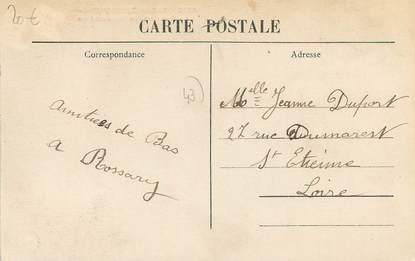 20 €
CARTE POSTALE
Correspondance
Adresse
43
Amitiées de Bas
a Rossary
Melle Jeanne Duport
27 rue Dumarest
St Etienne
Loire